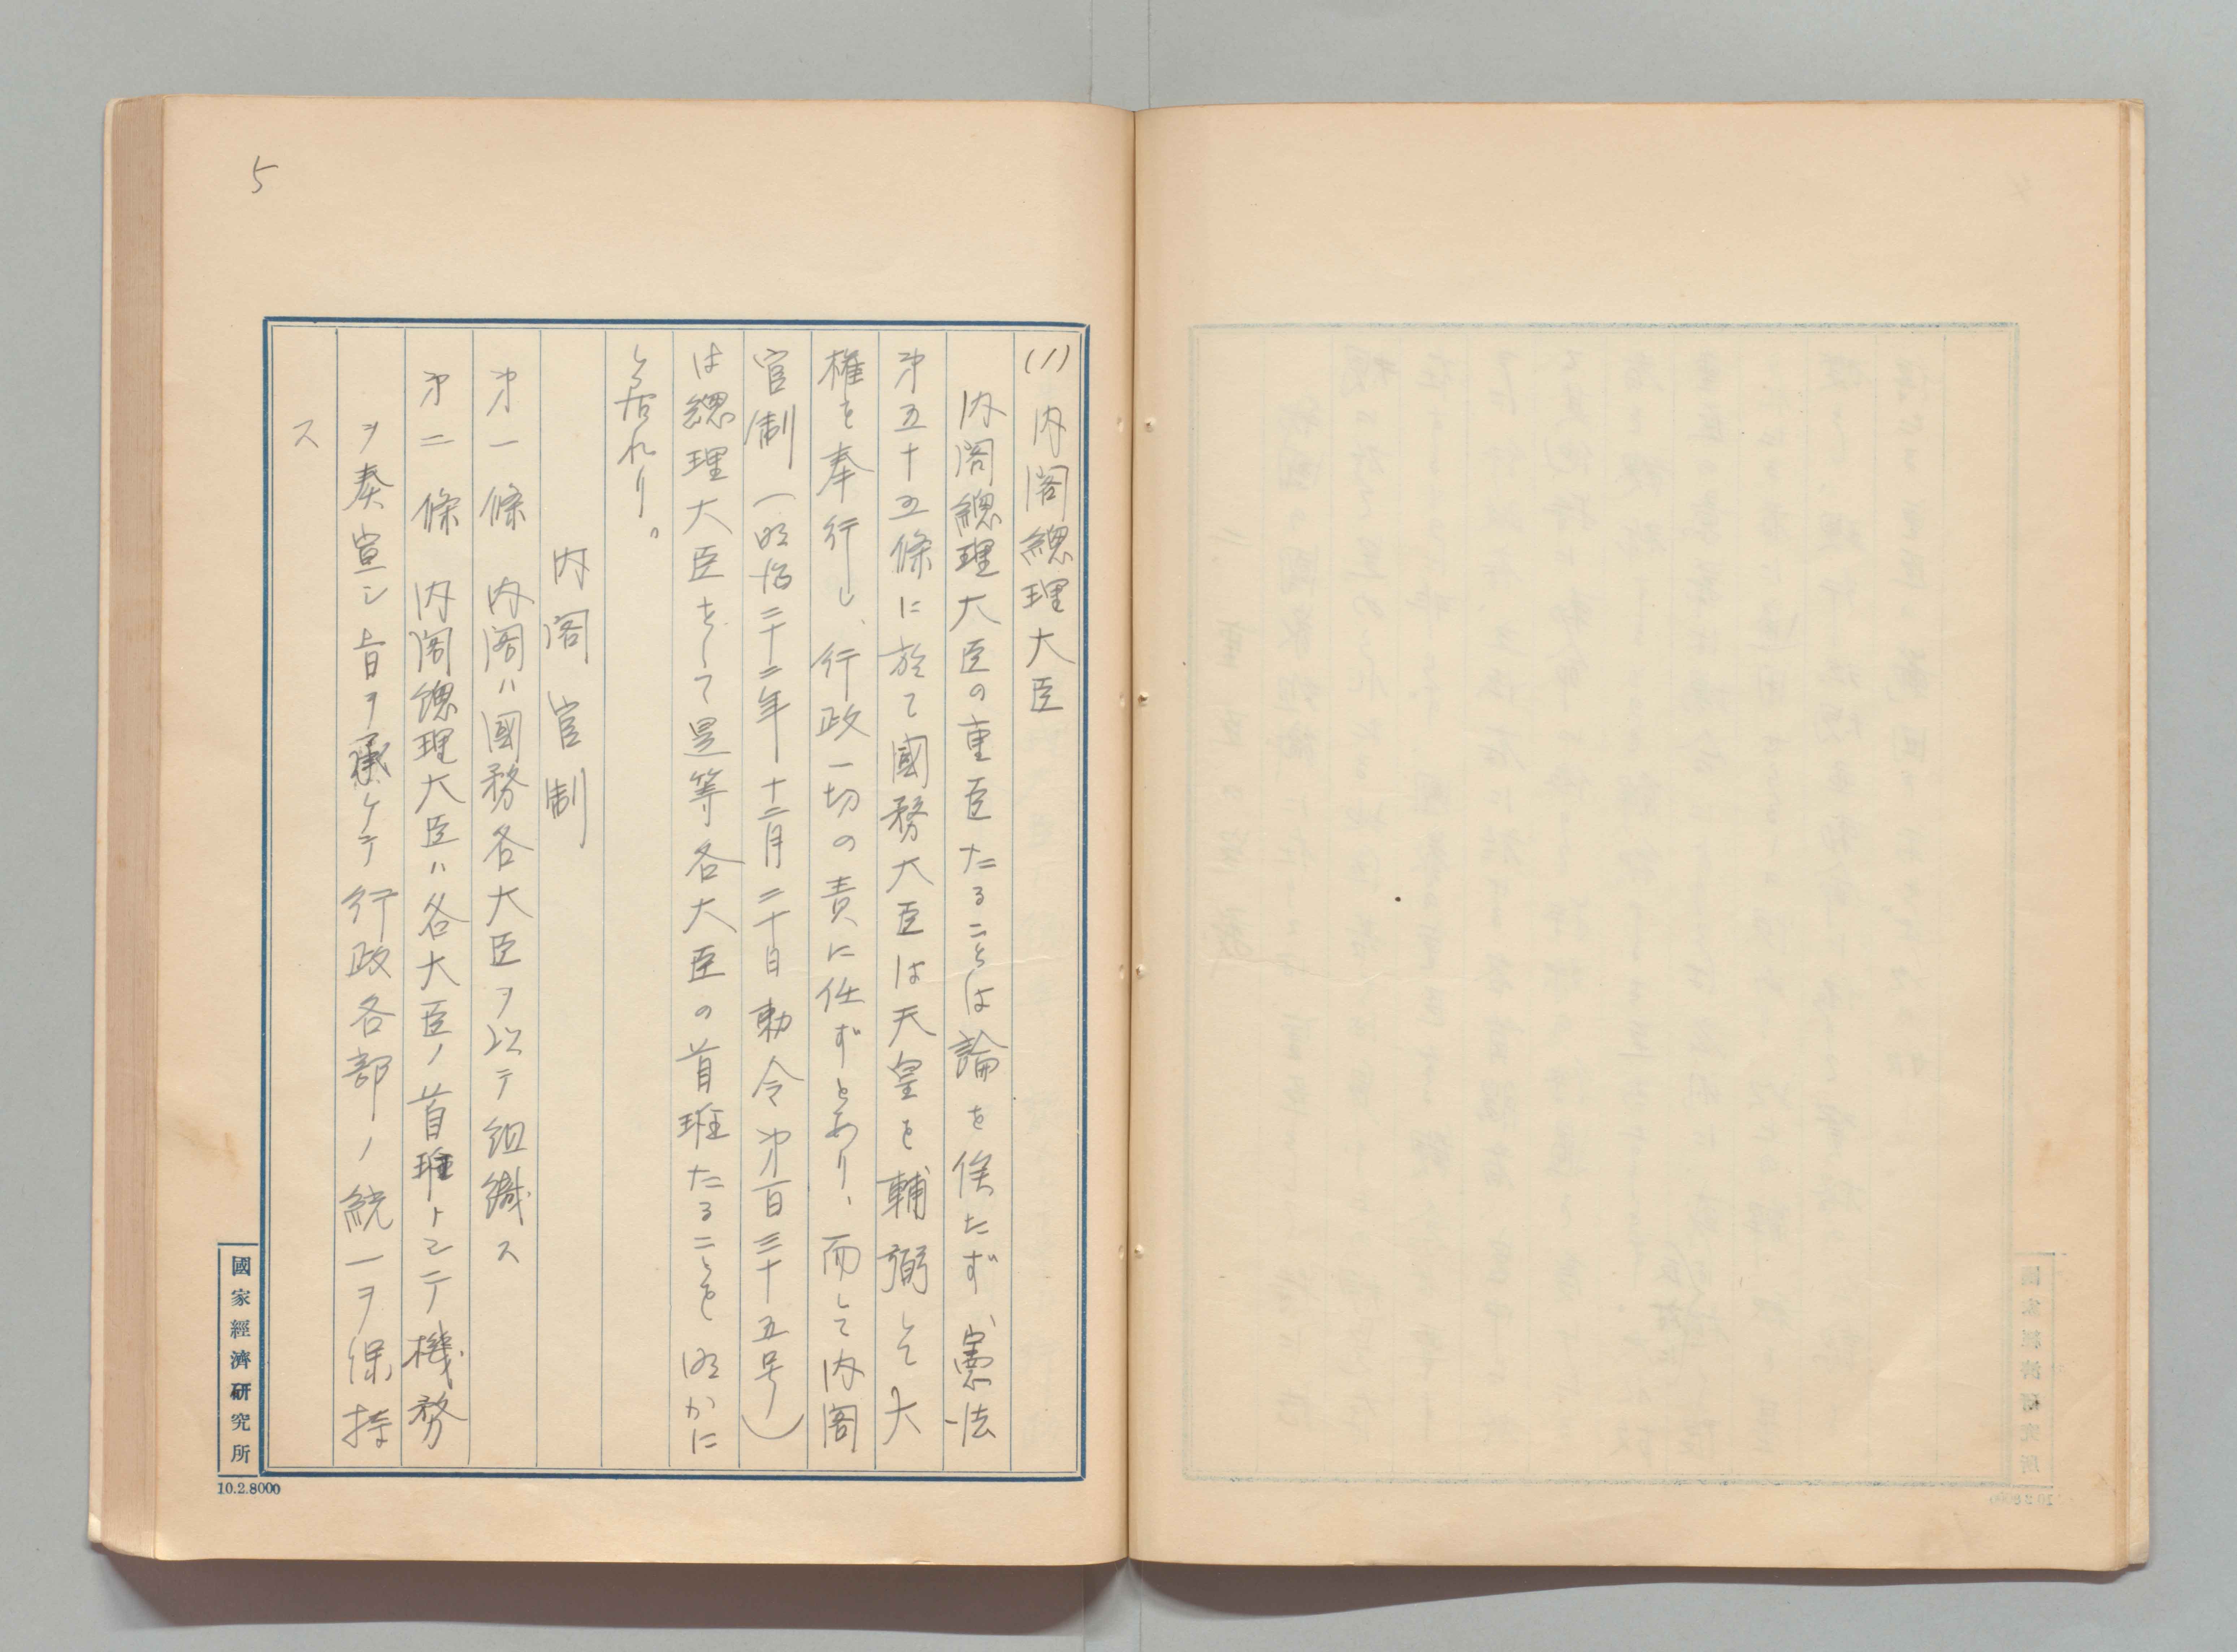 5
(1) 内閣總理大臣
内閣總理大臣の重臣たることは論を俟たず、憲法
第五十五條に於て國務大臣は天皇を輔弼して大
権を奉行し、行政一切の責に任ずとあり、而して内閣
官制(明治二十二年十二月二十日勅令第百三十五号)
は總理大臣をして是等各大臣の首班たることを明かに
し居れり。
内閣官制
第一條 内閣ハ國務各大臣ヲ以テ組織ス
第二條 内閣總理大臣ハ各大臣ノ首班トシテ機務
ヲ奏宣シ旨ヲ承ケテ行政各部ノ統一ヲ保持
ス
國家經濟研究所
10.2.8000